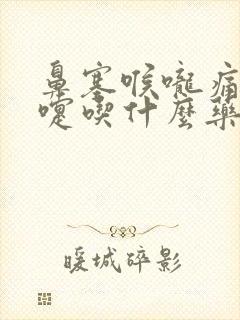 鼻塞喉嚨痛
嚏喫什麼藥
暖城碎影